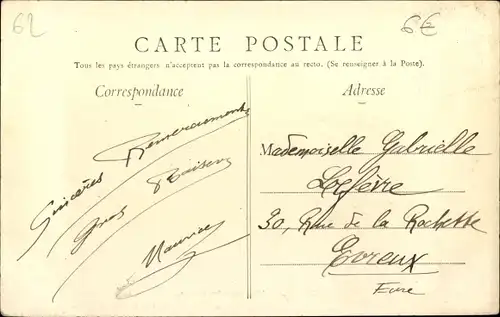 62
6€
CARTE POSTALE
Tous les pays étrangers n'acceptent pas la correspondance au recto. (Se renseigner à la Poste).
Correspondance
Adresse
Sincères Remerciements
Gros Baisers
Maurice
Mademoiselle Gabrielle
Lefèvre
30, Rue de la Rochette
Evreux
Eure